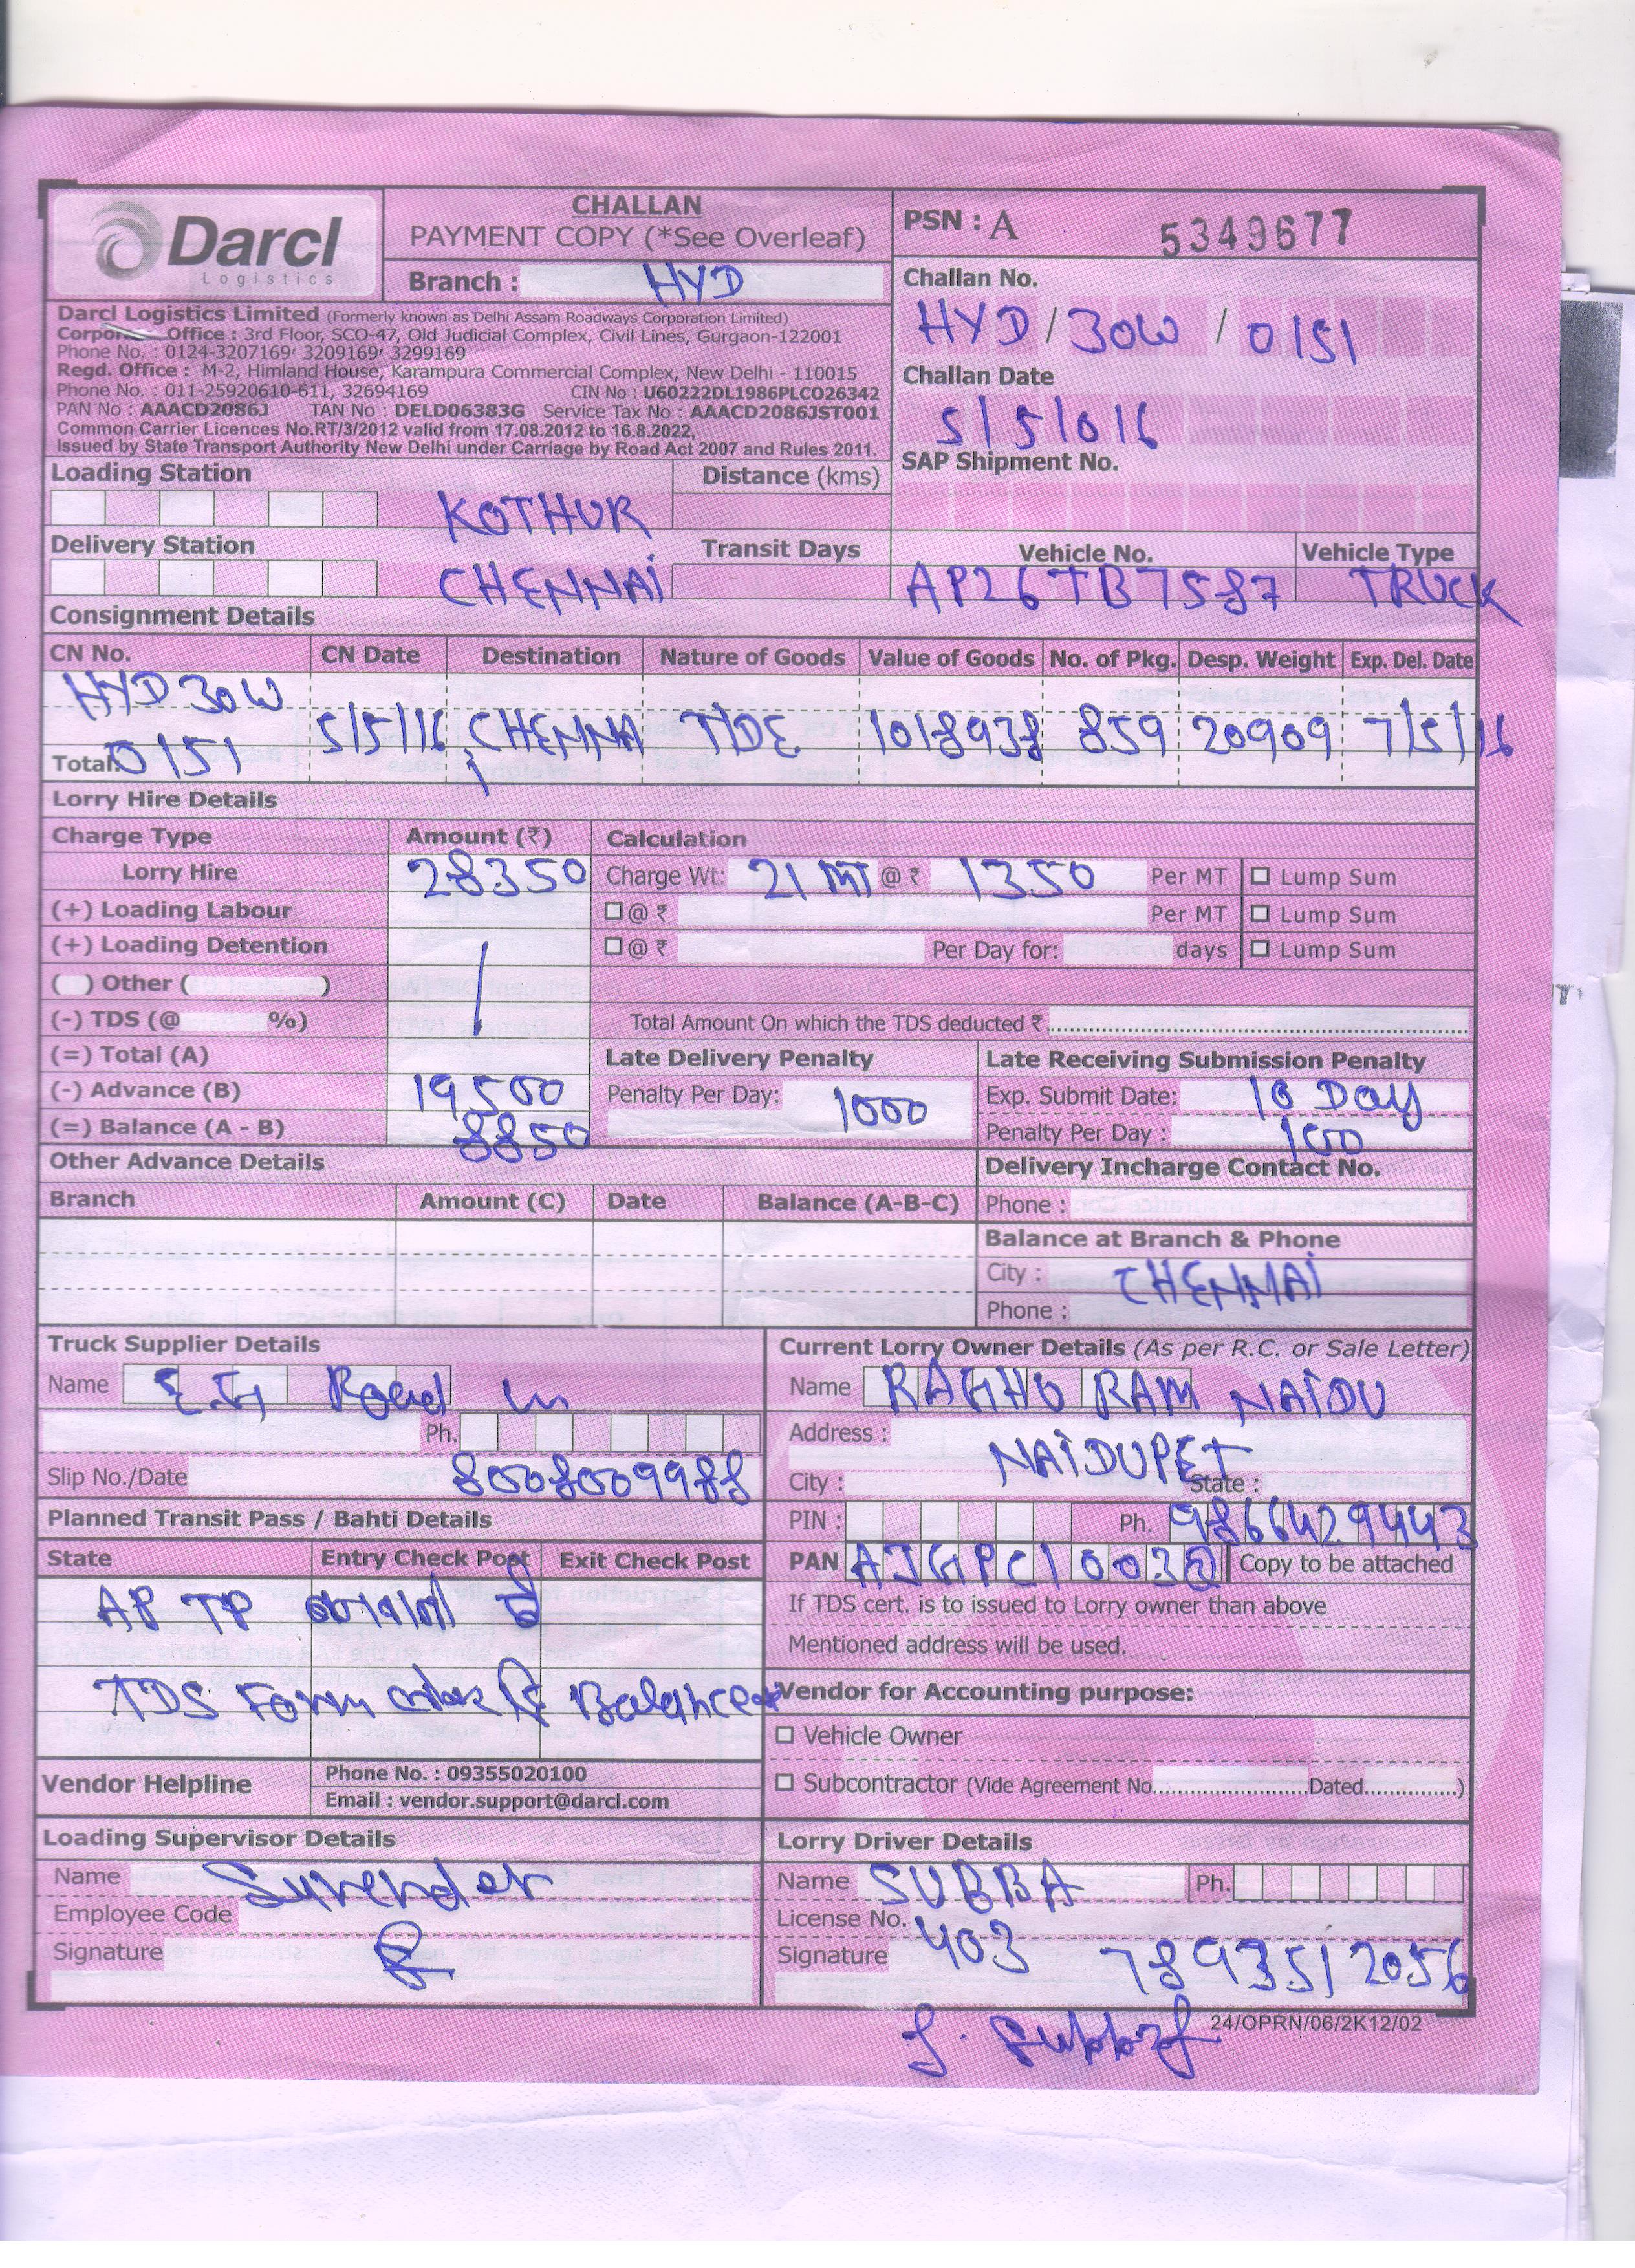 Darcl
Logistics
CHALLAN
PAYMENT COPY (*See Overleaf)
Branch : HYD
PSN : A 5349677
Challan No.
HYD / 30W / 0151
Challan Date
5/5/016
SAP Shipment No.
Darcl Logistics Limited (Formerly known as Delhi Assam Roadways Corporation Limited)
Corporate Office : 3rd Floor, SCO-47, Old Judicial Complex, Civil Lines, Gurgaon-122001
Phone No. : 0124-3207169, 3209169, 3299169
Regd. Office : M-2, Himland House, Karampura Commercial Complex, New Delhi - 110015
Phone No. : 011-25920610-611, 32694169 CIN No : U60222DL1986PLCO26342
PAN No : AAACD2086J TAN No : DELD06383G Service Tax No : AAACD2086JST001
Common Carrier Licences No.RT/3/2012 valid from 17.08.2012 to 16.8.2022,
Issued by State Transport Authority New Delhi under Carriage by Road Act 2007 and Rules 2011.
Loading Station KOTHUR Distance (kms)
Delivery Station CHENNAi Transit Days
Vehicle No. AP26TB7587 Vehicle Type TRUCK
Consignment Details
CN No. CN Date Destination Nature of Goods Value of Goods No. of Pkg. Desp. Weight Exp. Del. Date
HYD 30W
0151 5/5/16 CHENNAi TIDE 1018938 859 20909 7/5/16
Total:
Lorry Hire Details
Charge Type Amount (₹) Calculation
Lorry Hire 28350 Charge Wt: 21 MT @ ₹ 1350 Per MT Lump Sum
(+) Loading Labour @ ₹ Per MT Lump Sum
(+) Loading Detention @ ₹ Per Day for: days Lump Sum
( ) Other ( )
(-) TDS (@ %) Total Amount On which the TDS deducted ₹
(=) Total (A) Late Delivery Penalty Late Receiving Submission Penalty
(-) Advance (B) 19500 Penalty Per Day: 1000 Exp. Submit Date: 10 Day
(=) Balance (A - B) 8850 Penalty Per Day : 100
Other Advance Details Delivery Incharge Contact No.
Branch Amount (C) Date Balance (A-B-C) Phone :
Balance at Branch & Phone
City : CHENNAi
Phone :
Truck Supplier Details
Name Road
Ph.
Slip No./Date 8008009988
Current Lorry Owner Details (As per R.C. or Sale Letter)
Name RAGHU RAM NAIDU
Address :
NAIDUPET
City : State :
PIN : Ph. 9866429443
PAN Copy to be attached
If TDS cert. is to issued to Lorry owner than above
Mentioned address will be used.
Planned Transit Pass / Bahti Details
State Entry Check Post Exit Check Post
AP TP
TDS Form Balance
Vendor for Accounting purpose:
Vehicle Owner
Subcontractor (Vide Agreement No. Dated )
Vendor Helpline
Phone No. : 09355020100
Email : vendor.support@darcl.com
Loading Supervisor Details
Name Surender
Employee Code
Signature
Lorry Driver Details
Name SUBBA Ph.
License No. 403
Signature 7893512056
24/OPRN/06/2K12/02